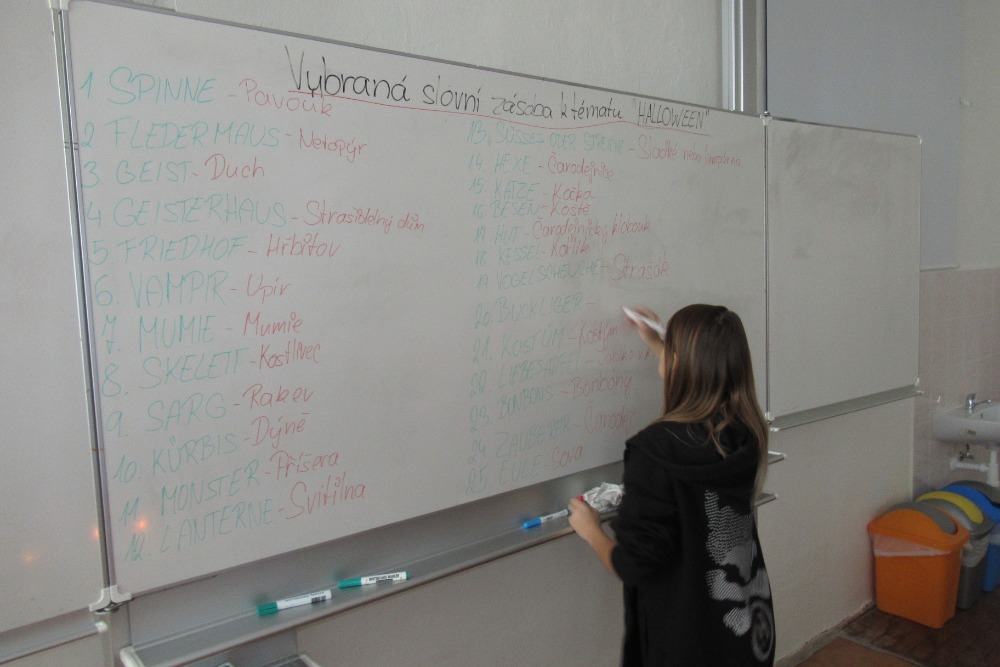 Vybraná slovní zásoba k tématu "HALLOWEEN"
1 SPINNE - Pavouk
2 FLEDERMAUS - Netopýr
3. GEIST - Duch
4 GEISTERHAUS - Strašidelný dům
5. FRIEDHOF - Hřbitov
6. VAMPIR - Upír
7. MUMIE - Mumie
8. SKELETT - Kostlivec
9. SARG - Rakev
10. KÜRBIS - Dýně
11. MONSTER - Příšera
12. LANTERNE - Svítilna
13. SÜSSES ODER STREICHE - Sladké nebo
14. HEXE - Čarodejnice
15. KATZE - Kočka
16. BESEN - Koště
17. HUT - Čarodejnický klobouk
18. KESSEL - Kotlík
19. VOGELSCHEUCHE - Strašák
20. BUCKLIGER -
21. KOSTÜM - Kostým
22. LIEBESAPFEL -
23. BONBONS - Bonbony
24. ZAUBERER - Čaroděj
25. EULE - Sova